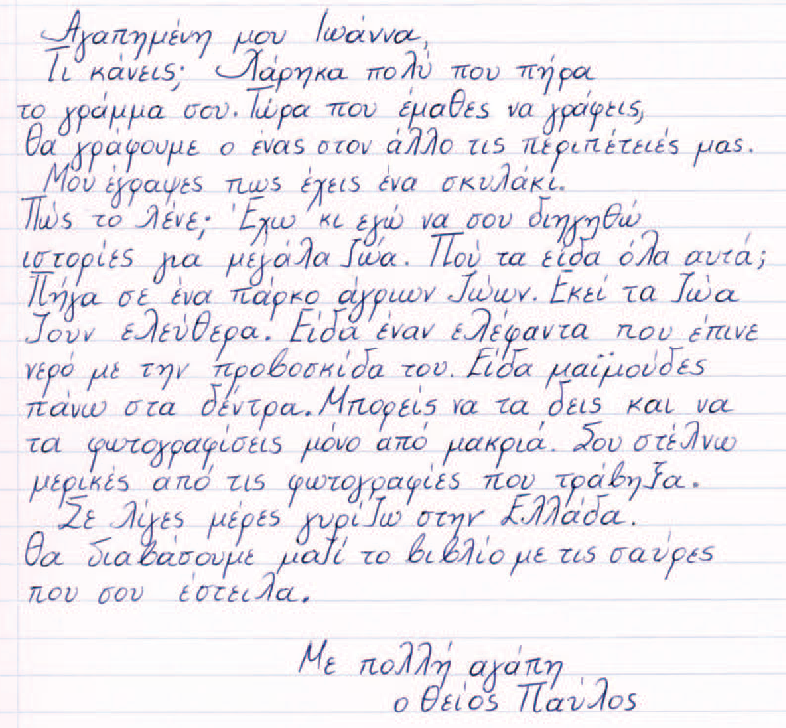 Αγαπημένη μου Ιωάννα,
Τι κάνεις; Χάρηκα πολύ που πήρα
το γράμμα σου. Τώρα που έμαθες να γράφεις,
θα γράφουμε ο ένας στον άλλο τις περιπέτειές μας.
Μου έγραψες πως έχεις ένα σκυλάκι.
Πώς το λένε; Έχω κι εγώ να σου διηγηθώ
ιστορίες για μεγάλα ζώα. Πού τα είδα όλα αυτά;
Πήγα σε ένα πάρκο άγριων ζώων. Εκεί τα ζώα
ζουν ελεύθερα. Είδα έναν ελέφαντα που έπινε
νερό με την προβοσκίδα του. Είδα μαϊμούδες
πάνω στα δέντρα. Μπορείς να τα δεις και να
τα φωτογραφίσεις μόνο από μακριά. Σου στέλνω
μερικές από τις φωτογραφίες που τράβηξα.
Σε λίγες μέρες γυρίζω στην Ελλάδα.
Θα διαβάσουμε μαζί το βιβλίο με τις σαύρες
που σου έστειλα.
Με πολλή αγάπη
ο θείος Παύλος